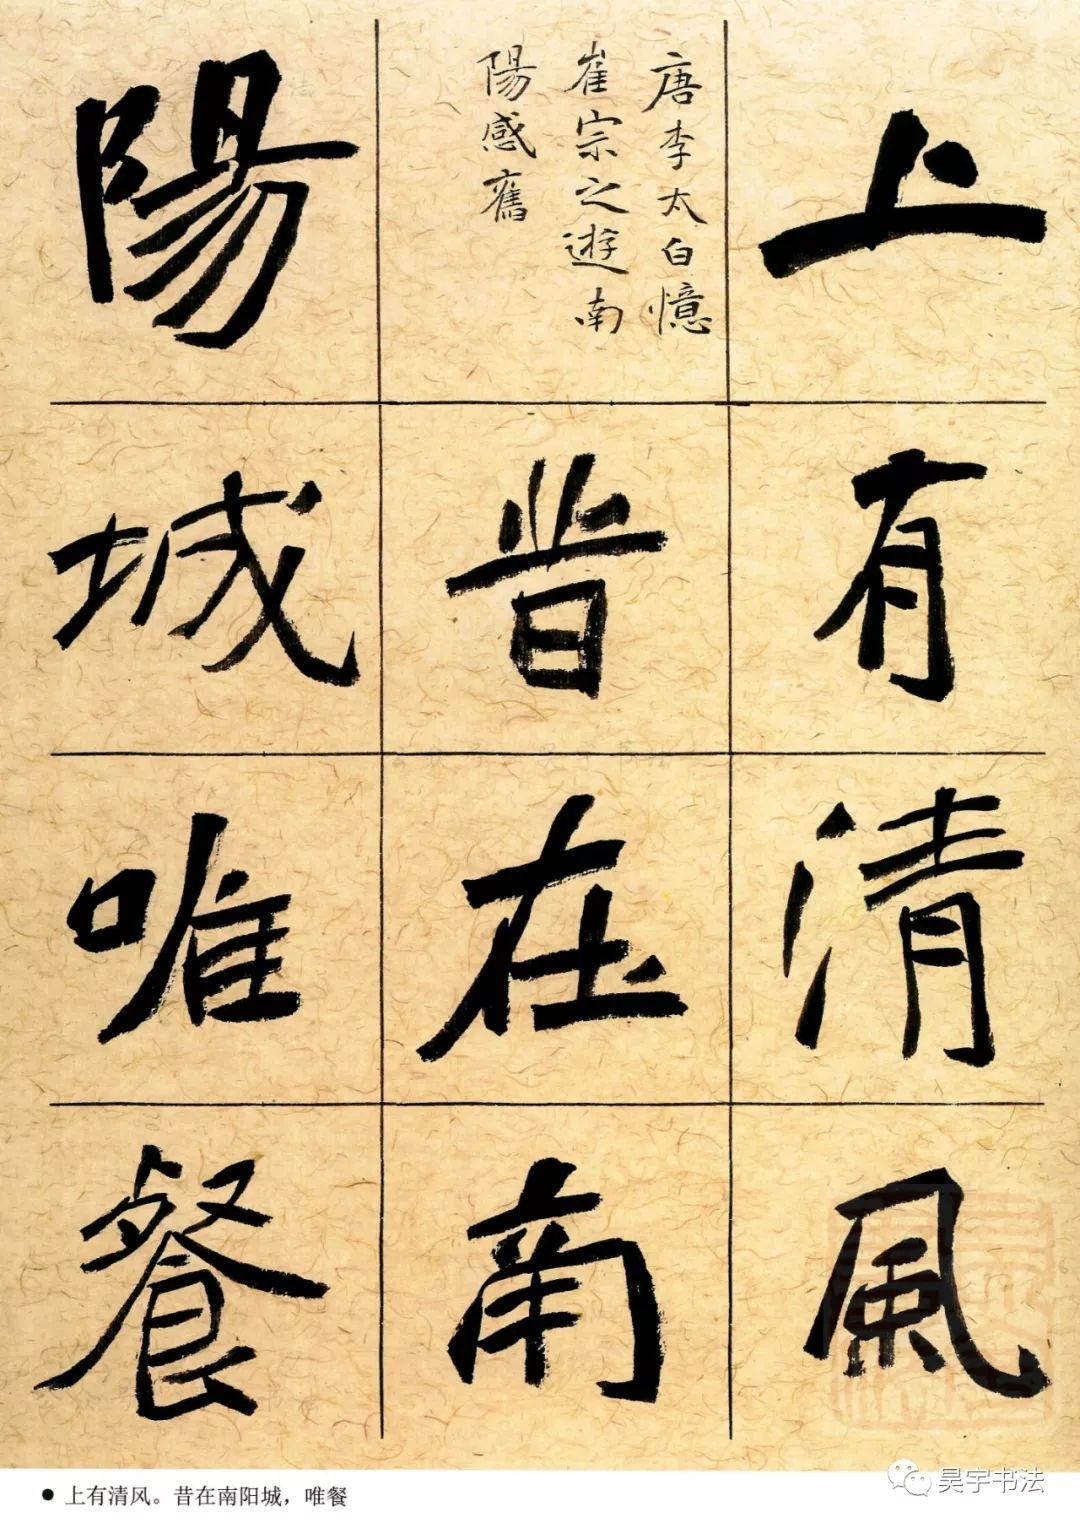 上有清風
唐李太白憶
崔宗之遊南
陽感舊
昔在南
陽城唯餐
● 上有清风。昔在南阳城，唯餐
昊宇书法